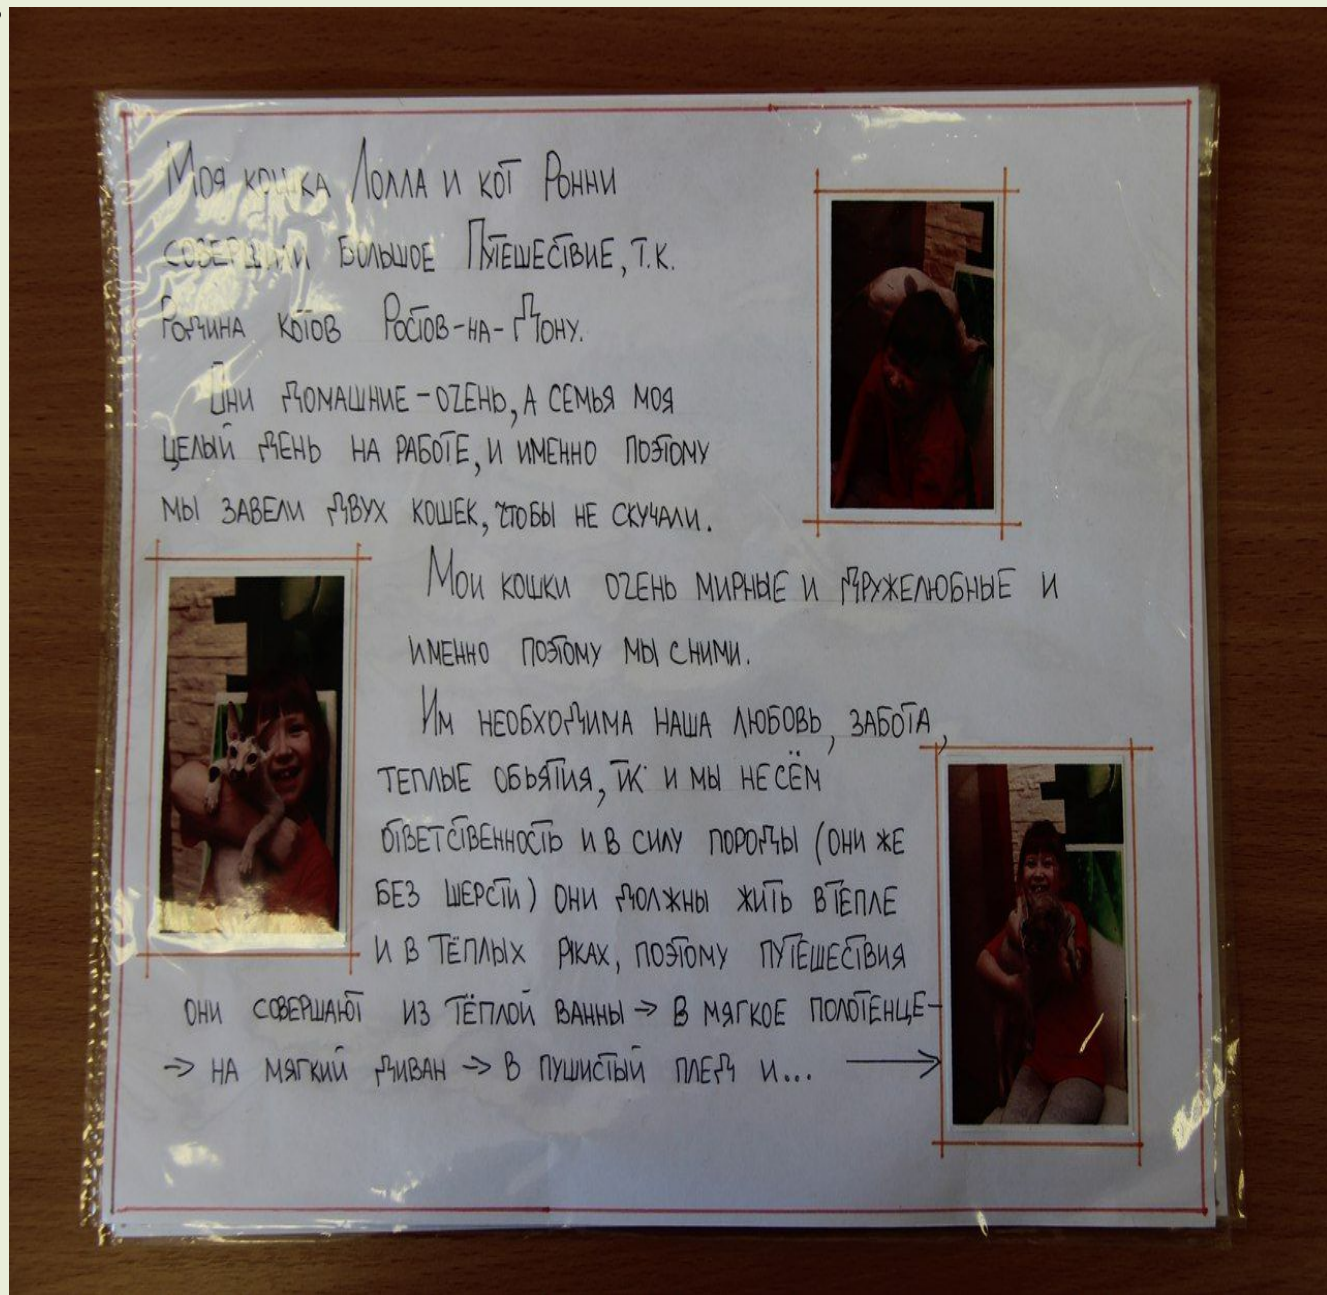 Моя кошка Лолла и кот Ронни
совершили большое Путешествие, т.к.
Родина котов Ростов-на-Дону.
Они домашние - очень, а семья моя
целый день на работе, и именно поэтому
мы завели двух кошек, чтобы не скучали.
Мои кошки очень мирные и дружелюбные и
именно поэтому мы сними.
Им необходима наша любовь, забота,
теплые обьятия, тк и мы несём
ответственность и в силу породы (они же
без шерсти) они должны жить в тепле
и в тёплых руках, поэтому путешествия
они совершают из тёплой ванны → в мягкое полотенце -
→ на мягкий диван → в пушистый плед и... →